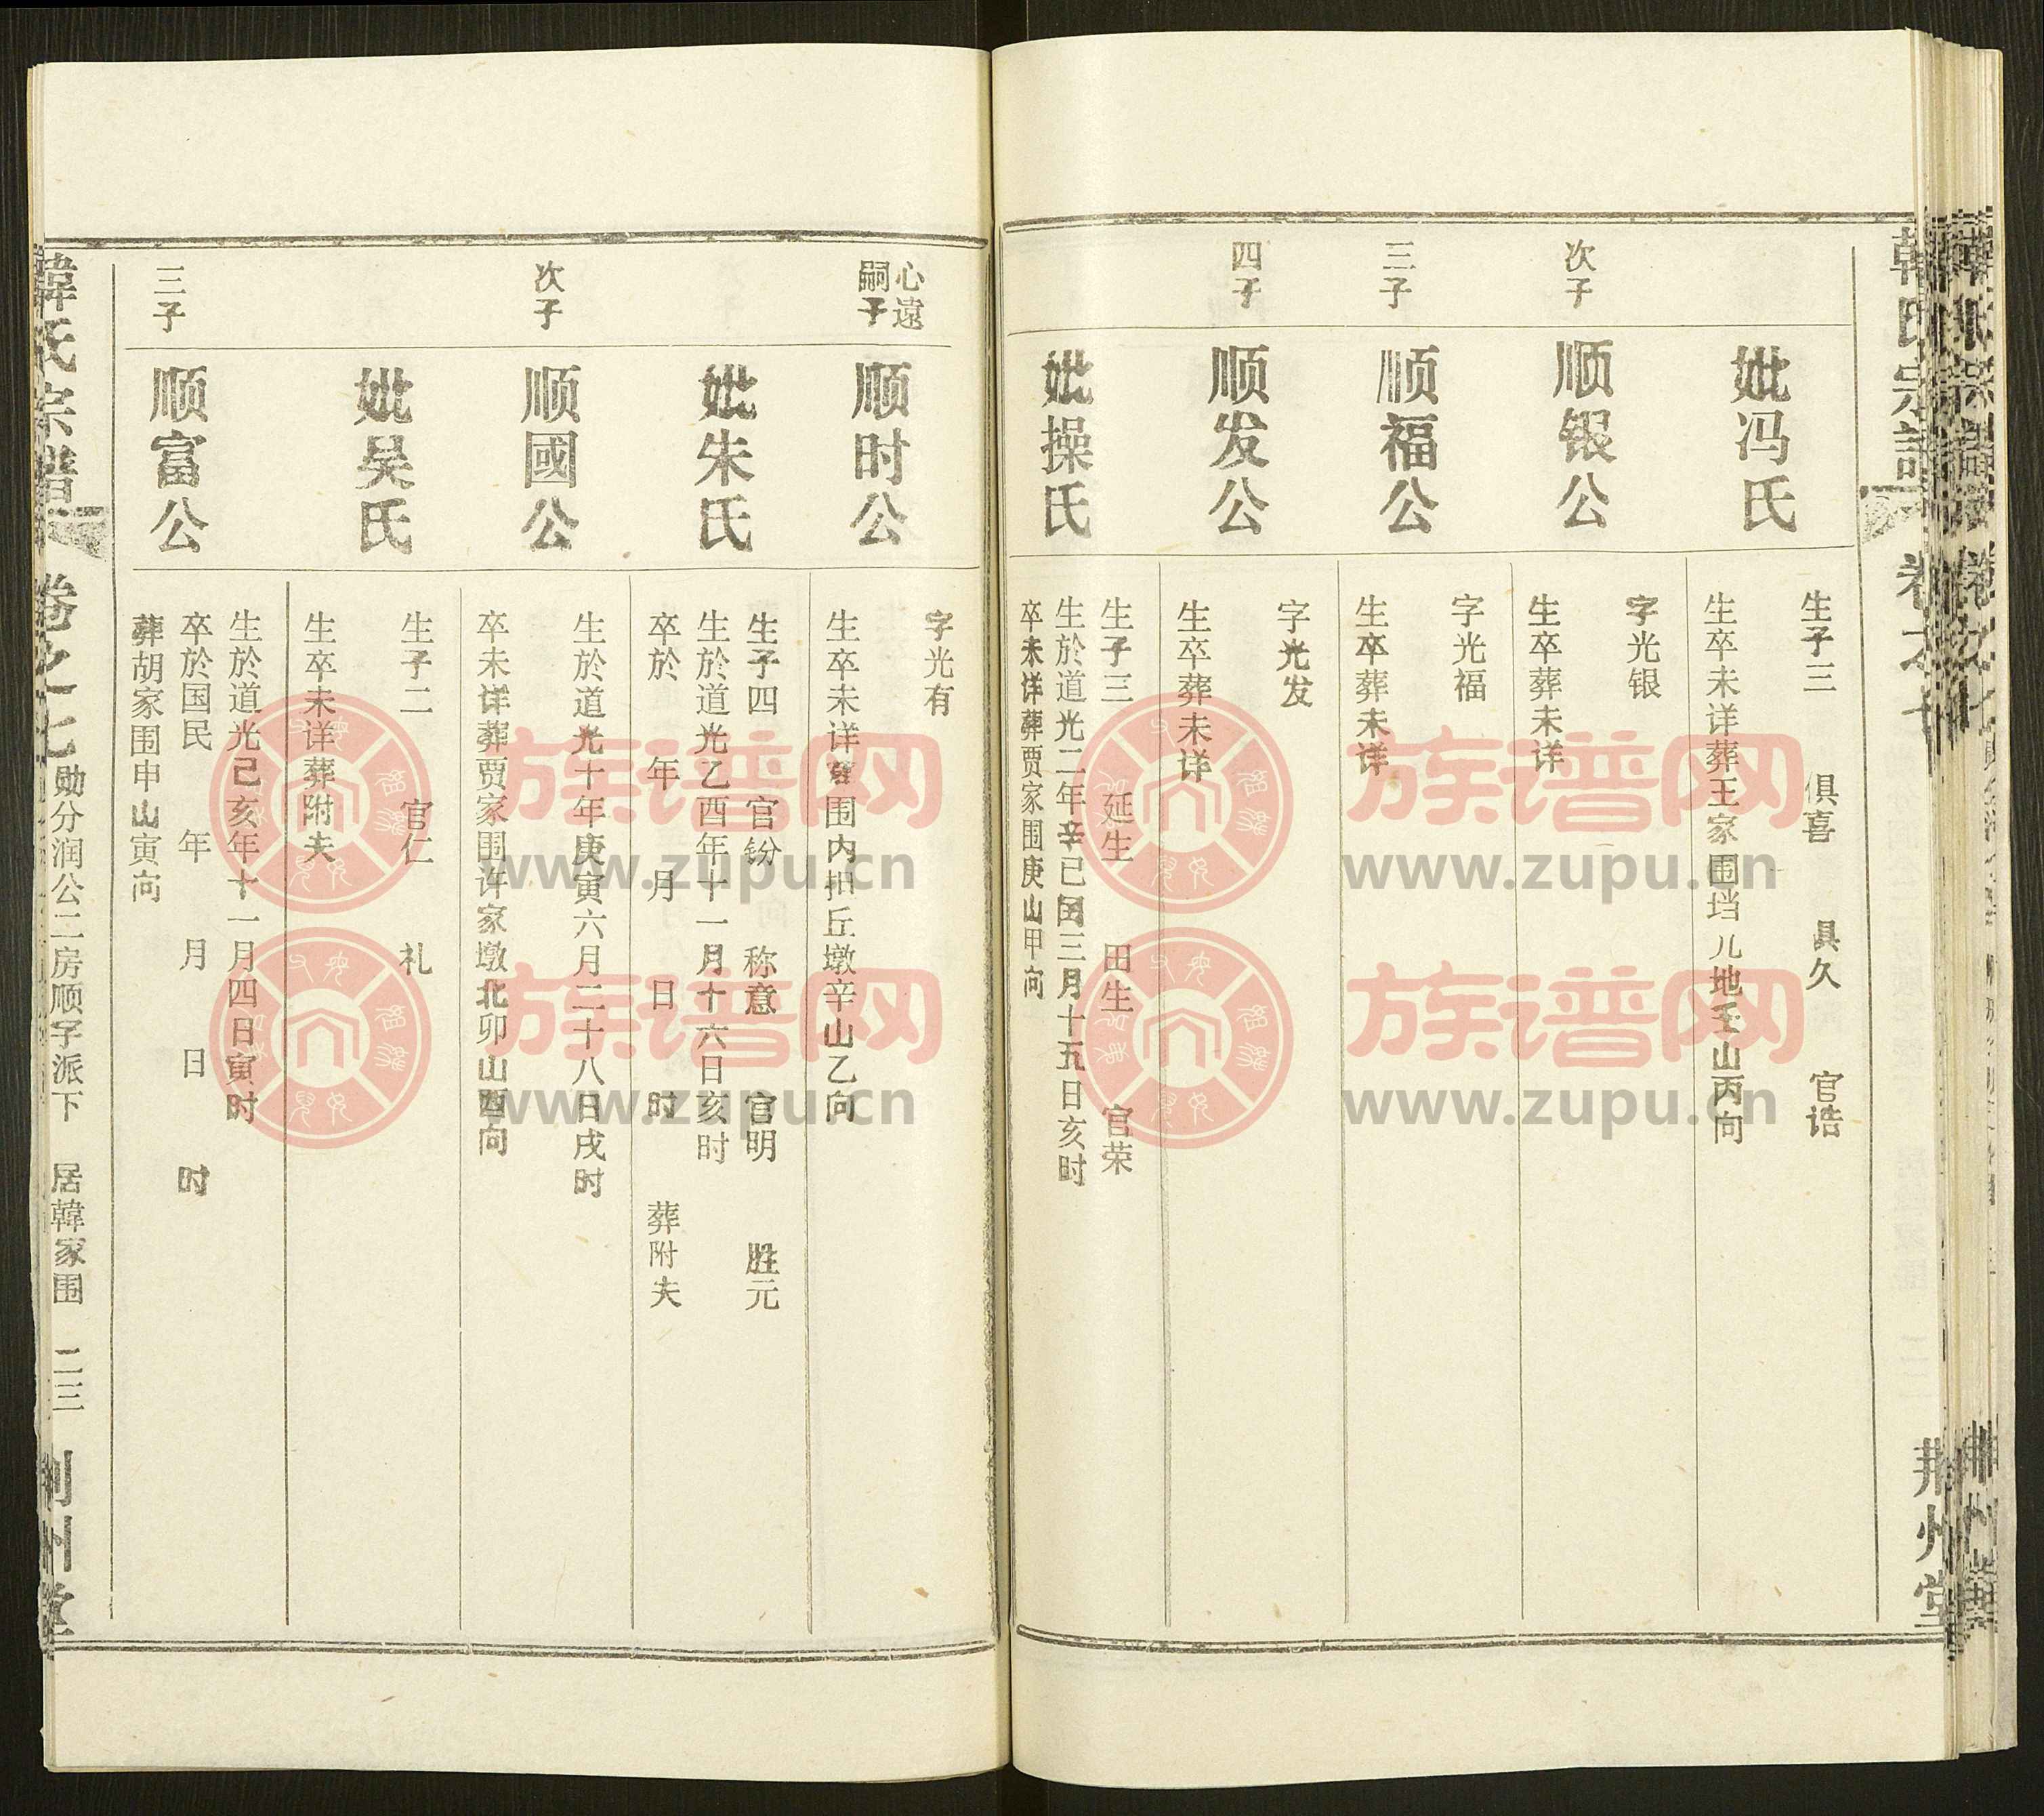 妣冯氏
生子三 俱喜 具久 官诰
生卒未详葬王家围垱儿地壬山丙向
次子
顺银公
字光银
生卒葬未详
三子
顺福公
字光福
生卒葬未详
四子
顺发公
字光发
生卒葬未详
妣操氏
生子三 延生 田生 官荣
生於道光二年辛已闰三月十五日亥时
卒未详葬贾家围庚山甲向
心遠
嗣子
顺时公
字光有
生卒未详 围内 丘墩辛山乙向
妣朱氏
生子四 官钫 称意 官明 胜元
生於道光乙酉年十一月十六日亥时
卒於 年 月 日 时 葬附夫
次子
顺國公
生於道光十年庚寅六月二十八日戌时
卒未详葬贾家围许家墩北卯山酉向
妣吴氏
生子二 官仁 礼
生卒未详葬附夫
三子
顺富公
生於道光己亥年十一月四日寅时
卒於国民 年 月 日 时
葬胡家围申山寅向
韓氏宗譜 卷之七 勋分润公二房顺字派下 居韓家围 二三 荆州堂
韓氏宗譜 荆州堂
族谱网
www.zupu.cn
族谱网
www.zupu.cn
族谱网
www.zupu.cn
族谱网
www.zupu.cn